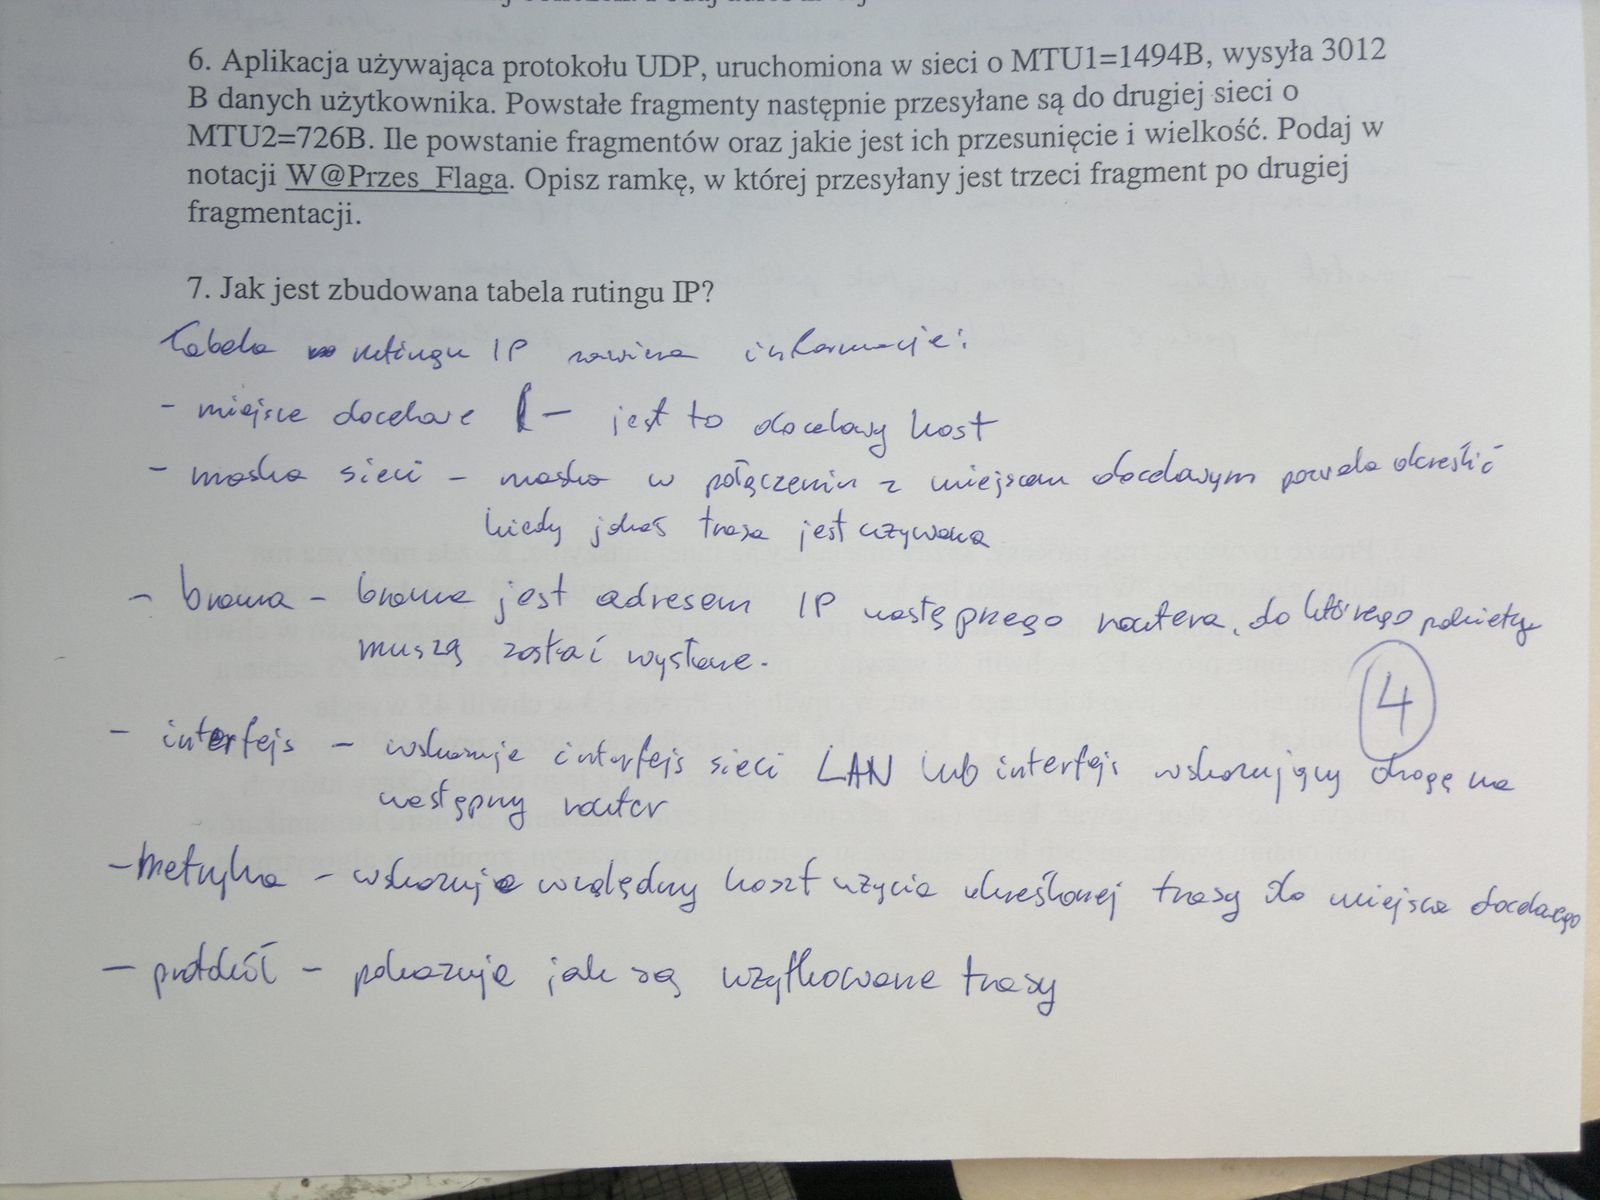 6. Aplikacja używająca protokołu UDP, uruchomiona w sieci o MTU1=1494B, wysyła 3012
B danych użytkownika. Powstałe fragmenty następnie przesyłane są do drugiej sieci o
MTU2=726B. Ile powstanie fragmentów oraz jakie jest ich przesunięcie i wielkość. Podaj w
notacji W@Przes_Flaga. Opisz ramkę, w której przesyłany jest trzeci fragment po drugiej
fragmentacji.
7. Jak jest zbudowana tabela rutingu IP?
Tabela rutingu IP zawiera informacje:
- miejsce docelowe - jest to docelowy host
- maska sieci - maska w połączeniu z miejscem docelowym pozwala określić
kiedy jakaś trasa jest używana
- brama - brama jest adresem IP następnego routera, do którego pakiety
muszą zostać wysłane.
4
- interfejs - wskazuje interfejs sieci LAN lub interfejs wskazujący drogę na
następny router
- Metryka - wskazuje względny koszt użycia określonej trasy do miejsca docelowego
- protokół - pokazuje jak są użytkowane trasy